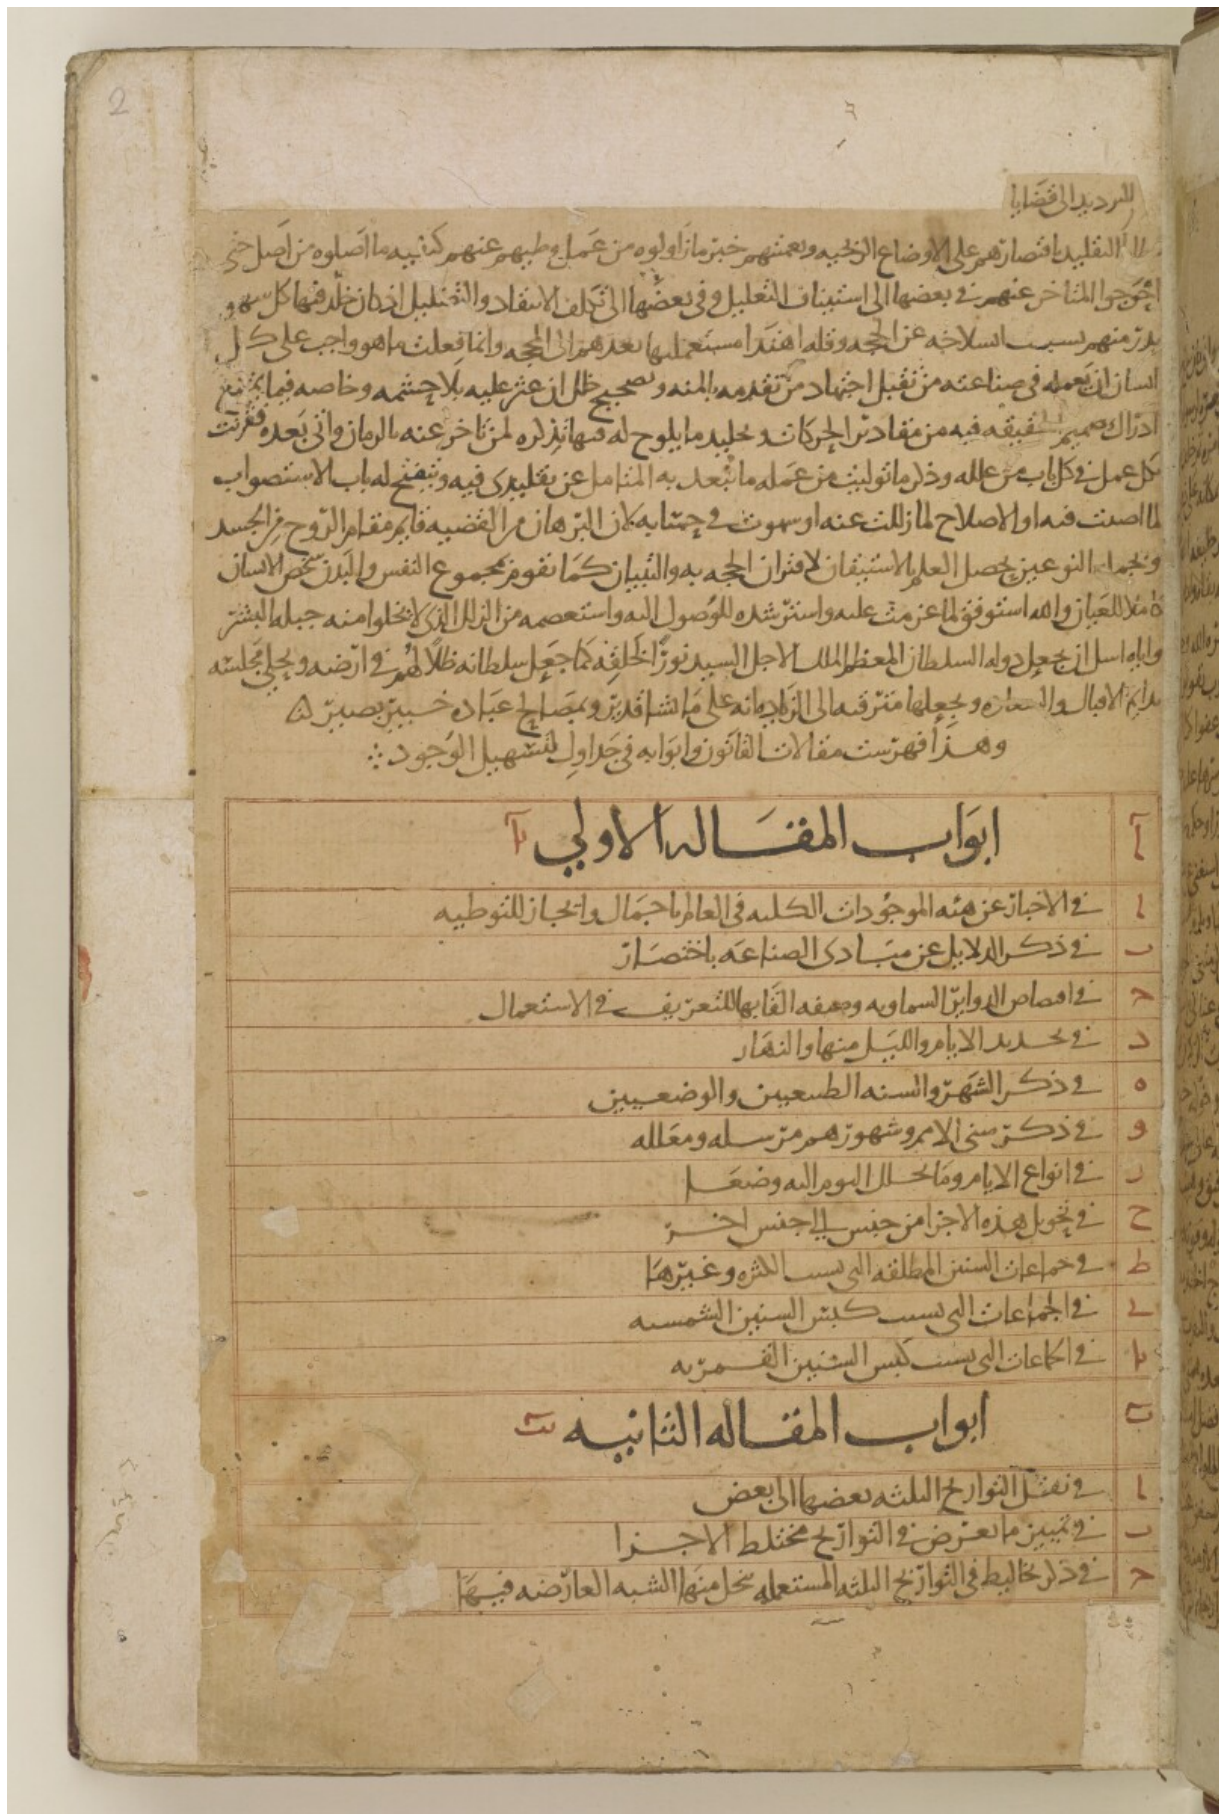 2
للترديد الى قضايا
التقليد باقتصارهم على الاوضاع الزيجيه وتعميتهم خبر ما زاولوه من عمل وطيهم عنهم كيفيه ما اصلوه من اصل حتى
احوجوا المتاخر عنهم في بعضها الى استيناف التعليل وفي بعضها الى تكلف الانتقاد والتضليل اذ كان خلد فيها كل سهو
بدر منهم بسبب انسلاخه عن الحجه وقله اهتدا مستعمليها بعدهم الى المحجه وانما فعلت ما هو واجب على كل
انسان ان يعمله في صناعته من تقبل اجتهاد من تقدمه بالمنه وتصحيح خلل ان عثر عليه بلا حشمه وخاصه فيما يمتنع
ادراك صميم الحقيقه فيه من مقادير الحركات وتخليد ما يلوح له فيها تذكره لمن تاخر عنه بالزمان واتى بعده فقرنت
بكل عمل في كل باب من علله وذكر ما توليت من عمله ما يبعد به المتامل عن تقليدى فيه وينفتح له باب الاستصواب
لما اصبت فيه او الاصلاح لما زللت عنه او سهوت في حسابه لان البرهان من القضيه قايم مقام الروح من الجسد
وبجمله النوعين يحصل العلم بالاستيقان لاقتران الحجه به والتبيان كما تقوم بمجموع النفس والبدن شخص الانسان
كاملا للعيان والله استوفق لما عزمت عليه واسترشده للوصول اليه واستعصمه من الزلل الذى لا يخلوا منه جبله البشر
واياه اسل ان يجعل دوله السلطان المعظم الملك الاجل السيد نورا لخلقه كما جعل سلطانه ظلا لهم في ارضه ويحلي مجلسه
بدايم الاقبال والسعاده ويجعلها مترقيه الى الزياده انه على ما يشا قدير وبمصالح عباده خبير بصير
وهذا فهرست مقالات القانون وابوابه في جداول لتسهيل الوجود
آ ابواب المقاله الاولي يا
ا في الاخبار عن هيئه الموجودات الكليه في العالم باجمال وايجاز للتوطيه
ب في ذكر الدلايل عن مبادى الصناعه باختصار
ج في اقصاص الدواير السماويه وصفه القابها للتعريف في الاستعمال
د في تحديد الايام والليل منها والنهار
ه في ذكر الشهر والسنه الطبيعيين والوضعيين
و في ذكر سنى الامم وشهورهم مرسله ومعلله
ز في انواع الايام وما تحلل اليوم اليه وضعا
ح في تحويل هذه الاجزا من جنس الى جنس اخر
ط في جماعات السنين المطلقه التى بسبب الكثره وغيرها
ى في الجماعات التى بسبب كبس السنين الشمسيه
يا في الجماعات التى بسبب كبس السنين القمريه
ب ابواب المقاله الثانيه يب
ا في نقل التواريخ الثلثه بعضها الى بعض
ب في تمييز ما يعرض في التواريخ مختلط الاجزا
ج في ذكر تخاليط في التواريخ الثلثه المستعمله تنحل منها الشبه العارضه فيها